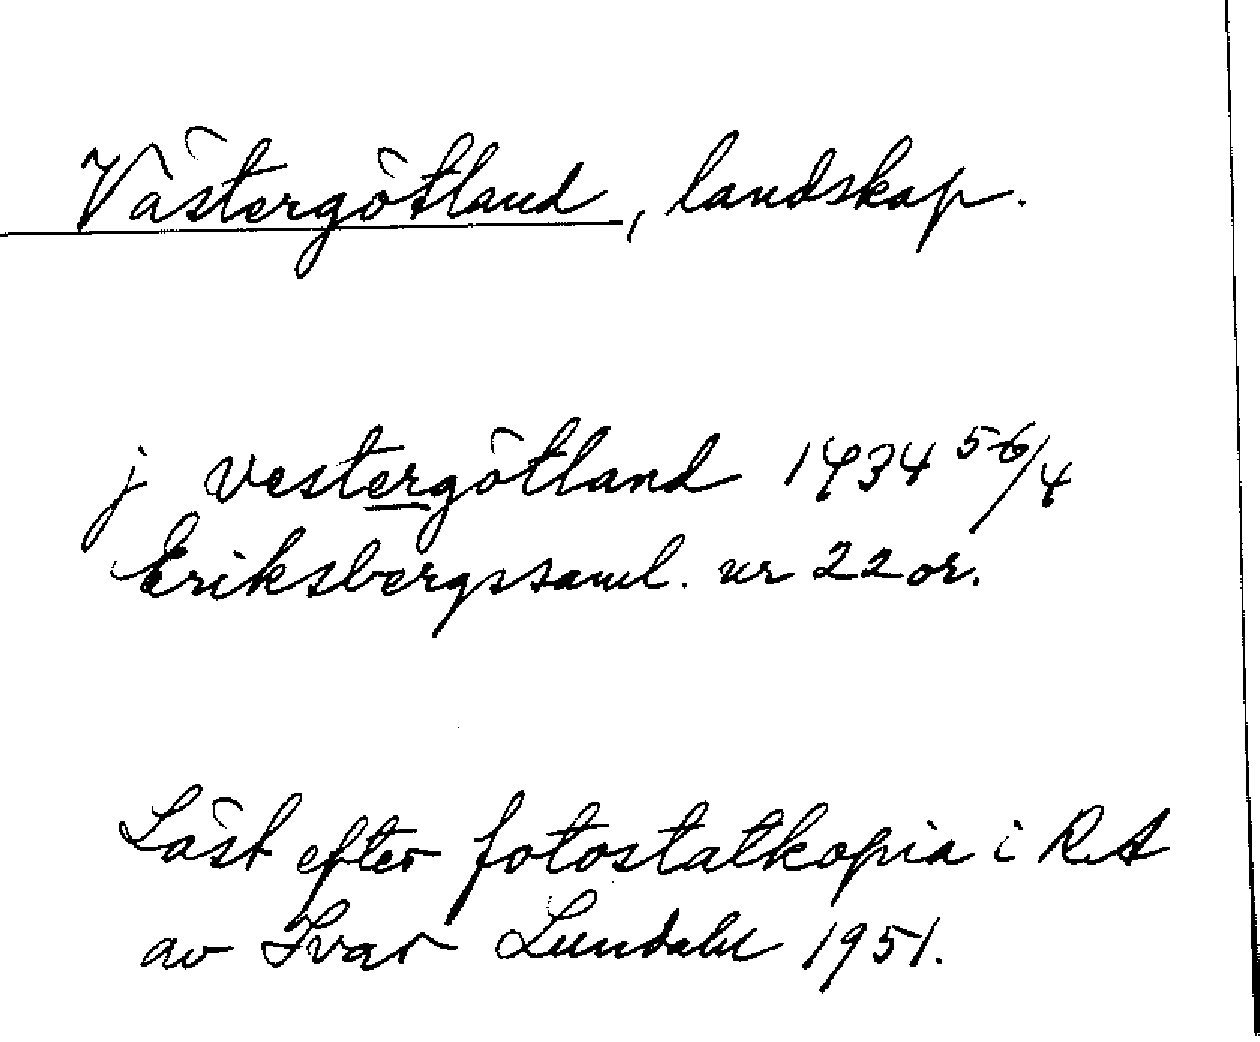 Västergötland, landskap.
j vestergötland 1434 5-6/4
Eriksbergssaml. nr 22 or.
Läst efter fotostatkopia i RA
av Ivar Lundahl 1951.